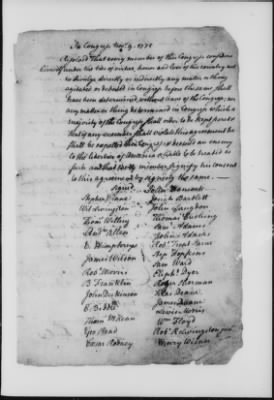 In Congress Nov. 9. 1775
Resolved That every member of this Congress considers
himself under the ties of virtue, honor and love of his country not
to divulge directly or indirectly any matter or thing
agitated or debated in congress before the same shall
have been determined, without leave of the Congress; nor
any matter or thing determined in Congress which a
majority of the Congress shall order to be kept secret
that if any member shall violate this agreement he
shall be expelled this Congress & deemed an enemy
to the liberties of America & liable to be treated as
such and that every member signify his consent
to this agreement by signing the same. —
Signed John Hancock
Josiah Bartlett
Wil Livingston John Langdon
Thomas Cushing
Saml Adams
E Humphreys John Adams
James Wilson Robt Treat Paine
Robt Morris Step Hopkins
Sam Ward
B Franklin Eliph. Dyer
John Dickinson Roger Sherman
Silas Deane
E Biddle James Duane
Thoms McKean Lewis Morris
Geo Read Wm Floyd
Cæsar Rodney Robt R Livingston junr
Henry Wisner